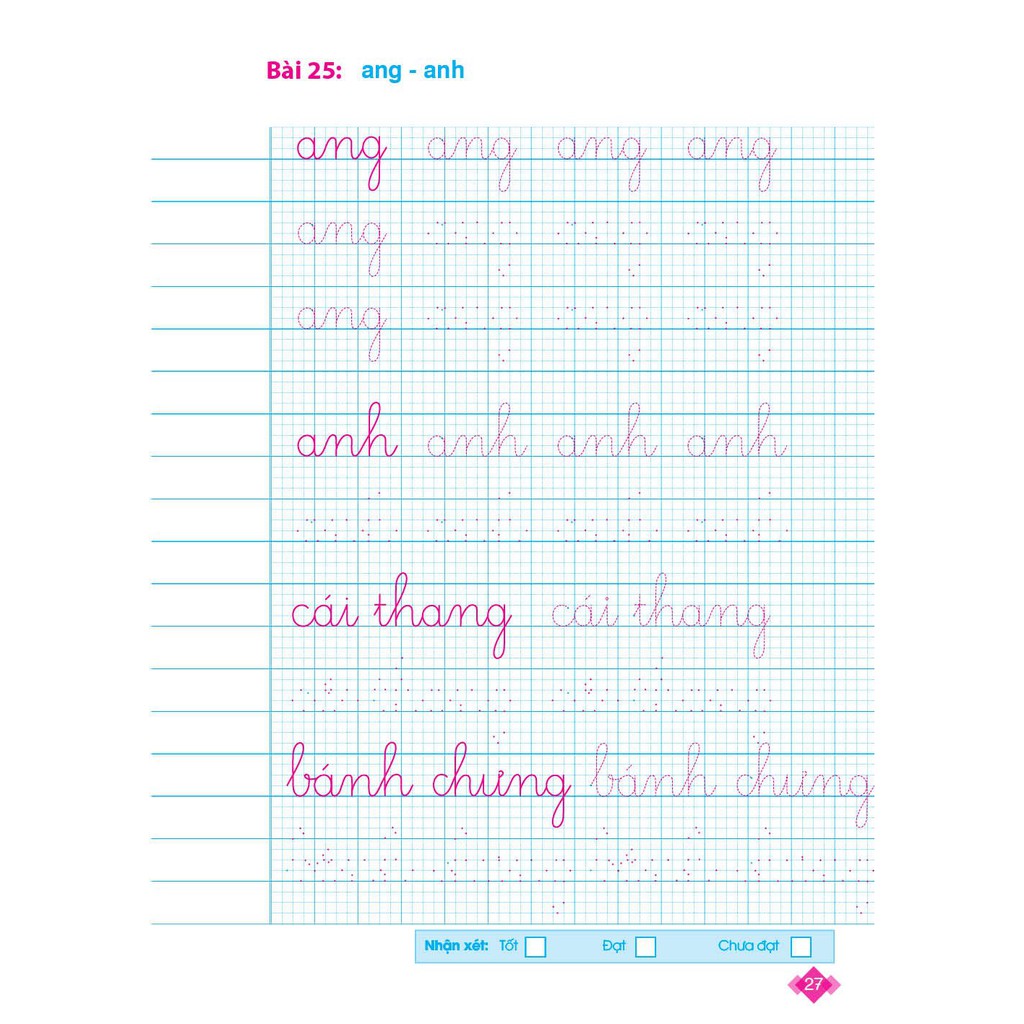 Bài 25: ang - anh
ang ang ang ang
ang
ang
anh anh anh anh
cái thang cái thang
bánh chưng bánh chưng
Nhận xét: Tốt Đạt Chưa đạt
27